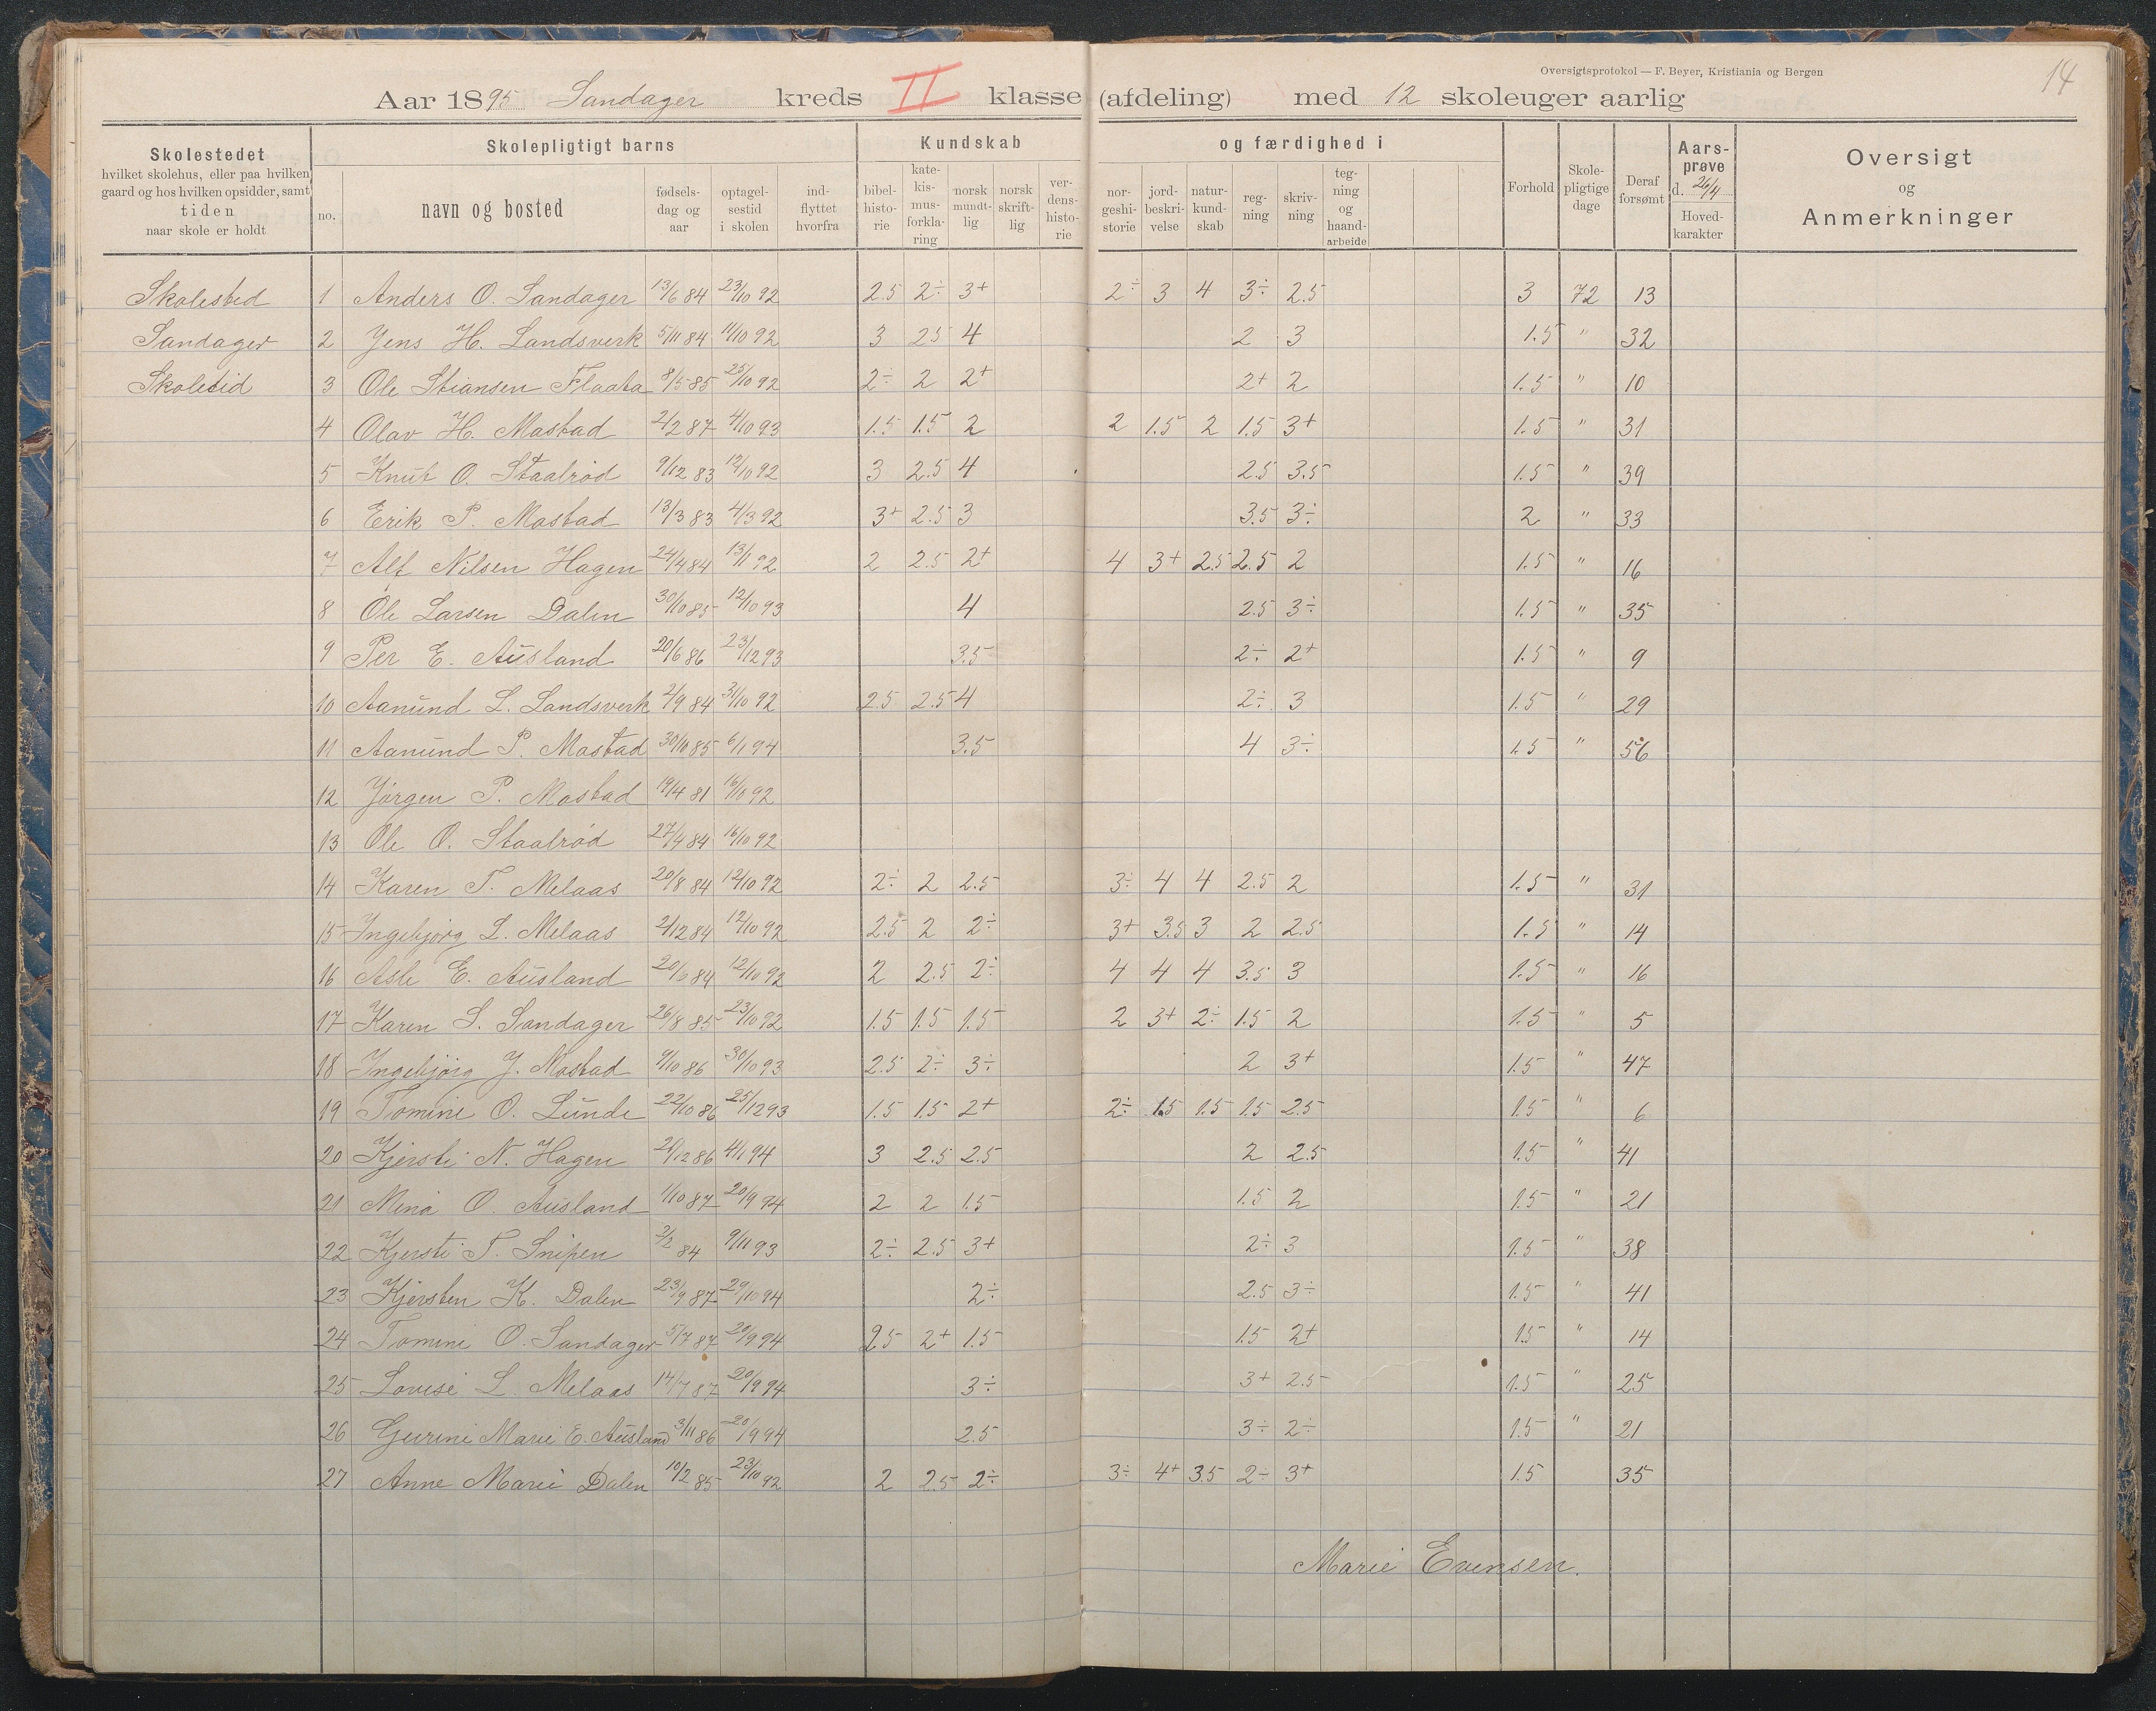 Oversigtsprotokol — F. Beyer, Kristiania og Bergen
14
Aar 1895 Sandager kreds II klasse (afdeling) med 12 skoleuger aarlig
Skolestedet
hvilket skolehus, eller paa hvilken
gaard og hos hvilken opsidder, samt
tiden
naar skole er holdt
Skolepligtigt barns
no.
navn og bosted
fødsels-
dag og
aar
optagel-
sestid
i skolen
ind-
flyttet
hvorfra
Kundskab
bibel-
histo-
rie
kate-
kis-
mus-
forkla-
ring
norsk
mundt-
lig
norsk
skrift-
lig
ver-
dens-
histo-
rie
og færdighed i
nor-
geshi-
storie
jord-
beskri-
velse
natur-
kund-
skab
reg-
ning
skriv-
ning
teg-
ning
og
haand-
arbeide
Forhold
Skole-
pligtige
dage
Deraf
forsømt
Aars-
prøve
d. 26/4
Hoved-
karakter
Oversigt
og
Anmerkninger
Skolested 1 Anders O. Sandager 13/6 84 23/10 92 2.5 2÷ 3+ 2÷ 3 4 3÷ 2.5 3 72 13
Sandager 2 Jens H. Landsverk 5/11 84 11/10 92 3 2.5 4 2 3 1.5 " 32
Skoletid 3 Ole Stiansen Flaata 8/5 85 25/10 92 2÷ 2 2+ 2+ 2 1.5 " 10
4 Olav H. Mastad 2/2 87 4/10 93 1.5 1.5 2 2 1.5 2 1.5 3+ 1.5 " 31
5 Knut O. Staalrød 9/12 83 12/10 92 3 2.5 4 2.5 3.5 1.5 " 39
6 Erik P. Mastad 13/3 83 4/3 92 3+ 2.5 3 3.5 3÷ 2 " 33
7 Alf Nilsen Hagen 24/4 84 13/1 92 2 2.5 2+ 4 3+ 2.5 2.5 2 1.5 " 16
8 Ole Larsen Dalen 30/10 85 12/10 93 4 2.5 3÷ 1.5 " 35
9 Per E. Ausland 20/6 86 23/12 93 3.5 2÷ 2+ 1.5 " 9
10 Aanund L. Landsverk 2/9 84 31/10 92 2.5 2.5 4 2÷ 3 1.5 " 29
11 Aanund P. Mastad 30/10 85 6/1 94 3.5 4 3÷ 1.5 " 56
12 Jørgen P. Mastad 19/4 81 16/10 92
13 Ole O. Staalrød 27/4 84 16/10 92
14 Karen T. Melaas 20/8 84 12/10 92 2÷ 2 2.5 3÷ 4 4 2.5 2 1.5 " 31
15 Ingebjørg L. Melaas 2/12 84 12/10 92 2.5 2 2÷ 3+ 3.5 3 2 2.5 1.5 " 14
16 Asle E. Ausland 20/6 84 12/10 92 2 2.5 2÷ 4 4 4 3.5 3 1.5 " 16
17 Karen S. Sandager 26/8 85 23/10 92 1.5 1.5 1.5 2 3+ 2÷ 1.5 2 1.5 " 5
18 Ingebjørg J. Mastad 9/10 86 30/10 93 2.5 2÷ 3÷ 2 3+ 1.5 " 47
19 Tomine O. Lunde 22/10 86 25/12 93 1.5 1.5 2+ 2÷ 1.5 1.5 1.5 2.5 1.5 " 6
20 Kjersti N. Hagen 26/12 86 4/1 94 3 2.5 2.5 2 2.5 1.5 " 41
21 Mina O. Ausland 1/10 87 20/9 94 2 2 1.5 1.5 2 1.5 " 21
22 Kjersti T. Snipen 2/2 84 9/11 93 2÷ 2.5 3+ 2÷ 3 1.5 " 38
23 Kjersten K. Dalen 23/9 87 29/10 94 2÷ 2.5 3÷ 1.5 " 41
24 Tomine O. Sandager 5/7 87 20/9 94 2.5 2+ 1.5 1.5 2+ 1.5 " 14
25 Lovise L. Melaas 14/7 87 20/9 94 3÷ 3+ 2.5 1.5 " 25
26 Gurine Marie E. Ausland 3/11 86 20/9 94 2.5 3÷ 2÷ 1.5 " 21
27 Anne Marie Dalen 10/2 85 23/10 92 2 2.5 2÷ 3÷ 4+ 3.5 2÷ 3+ 1.5 35
Marie Evensen.